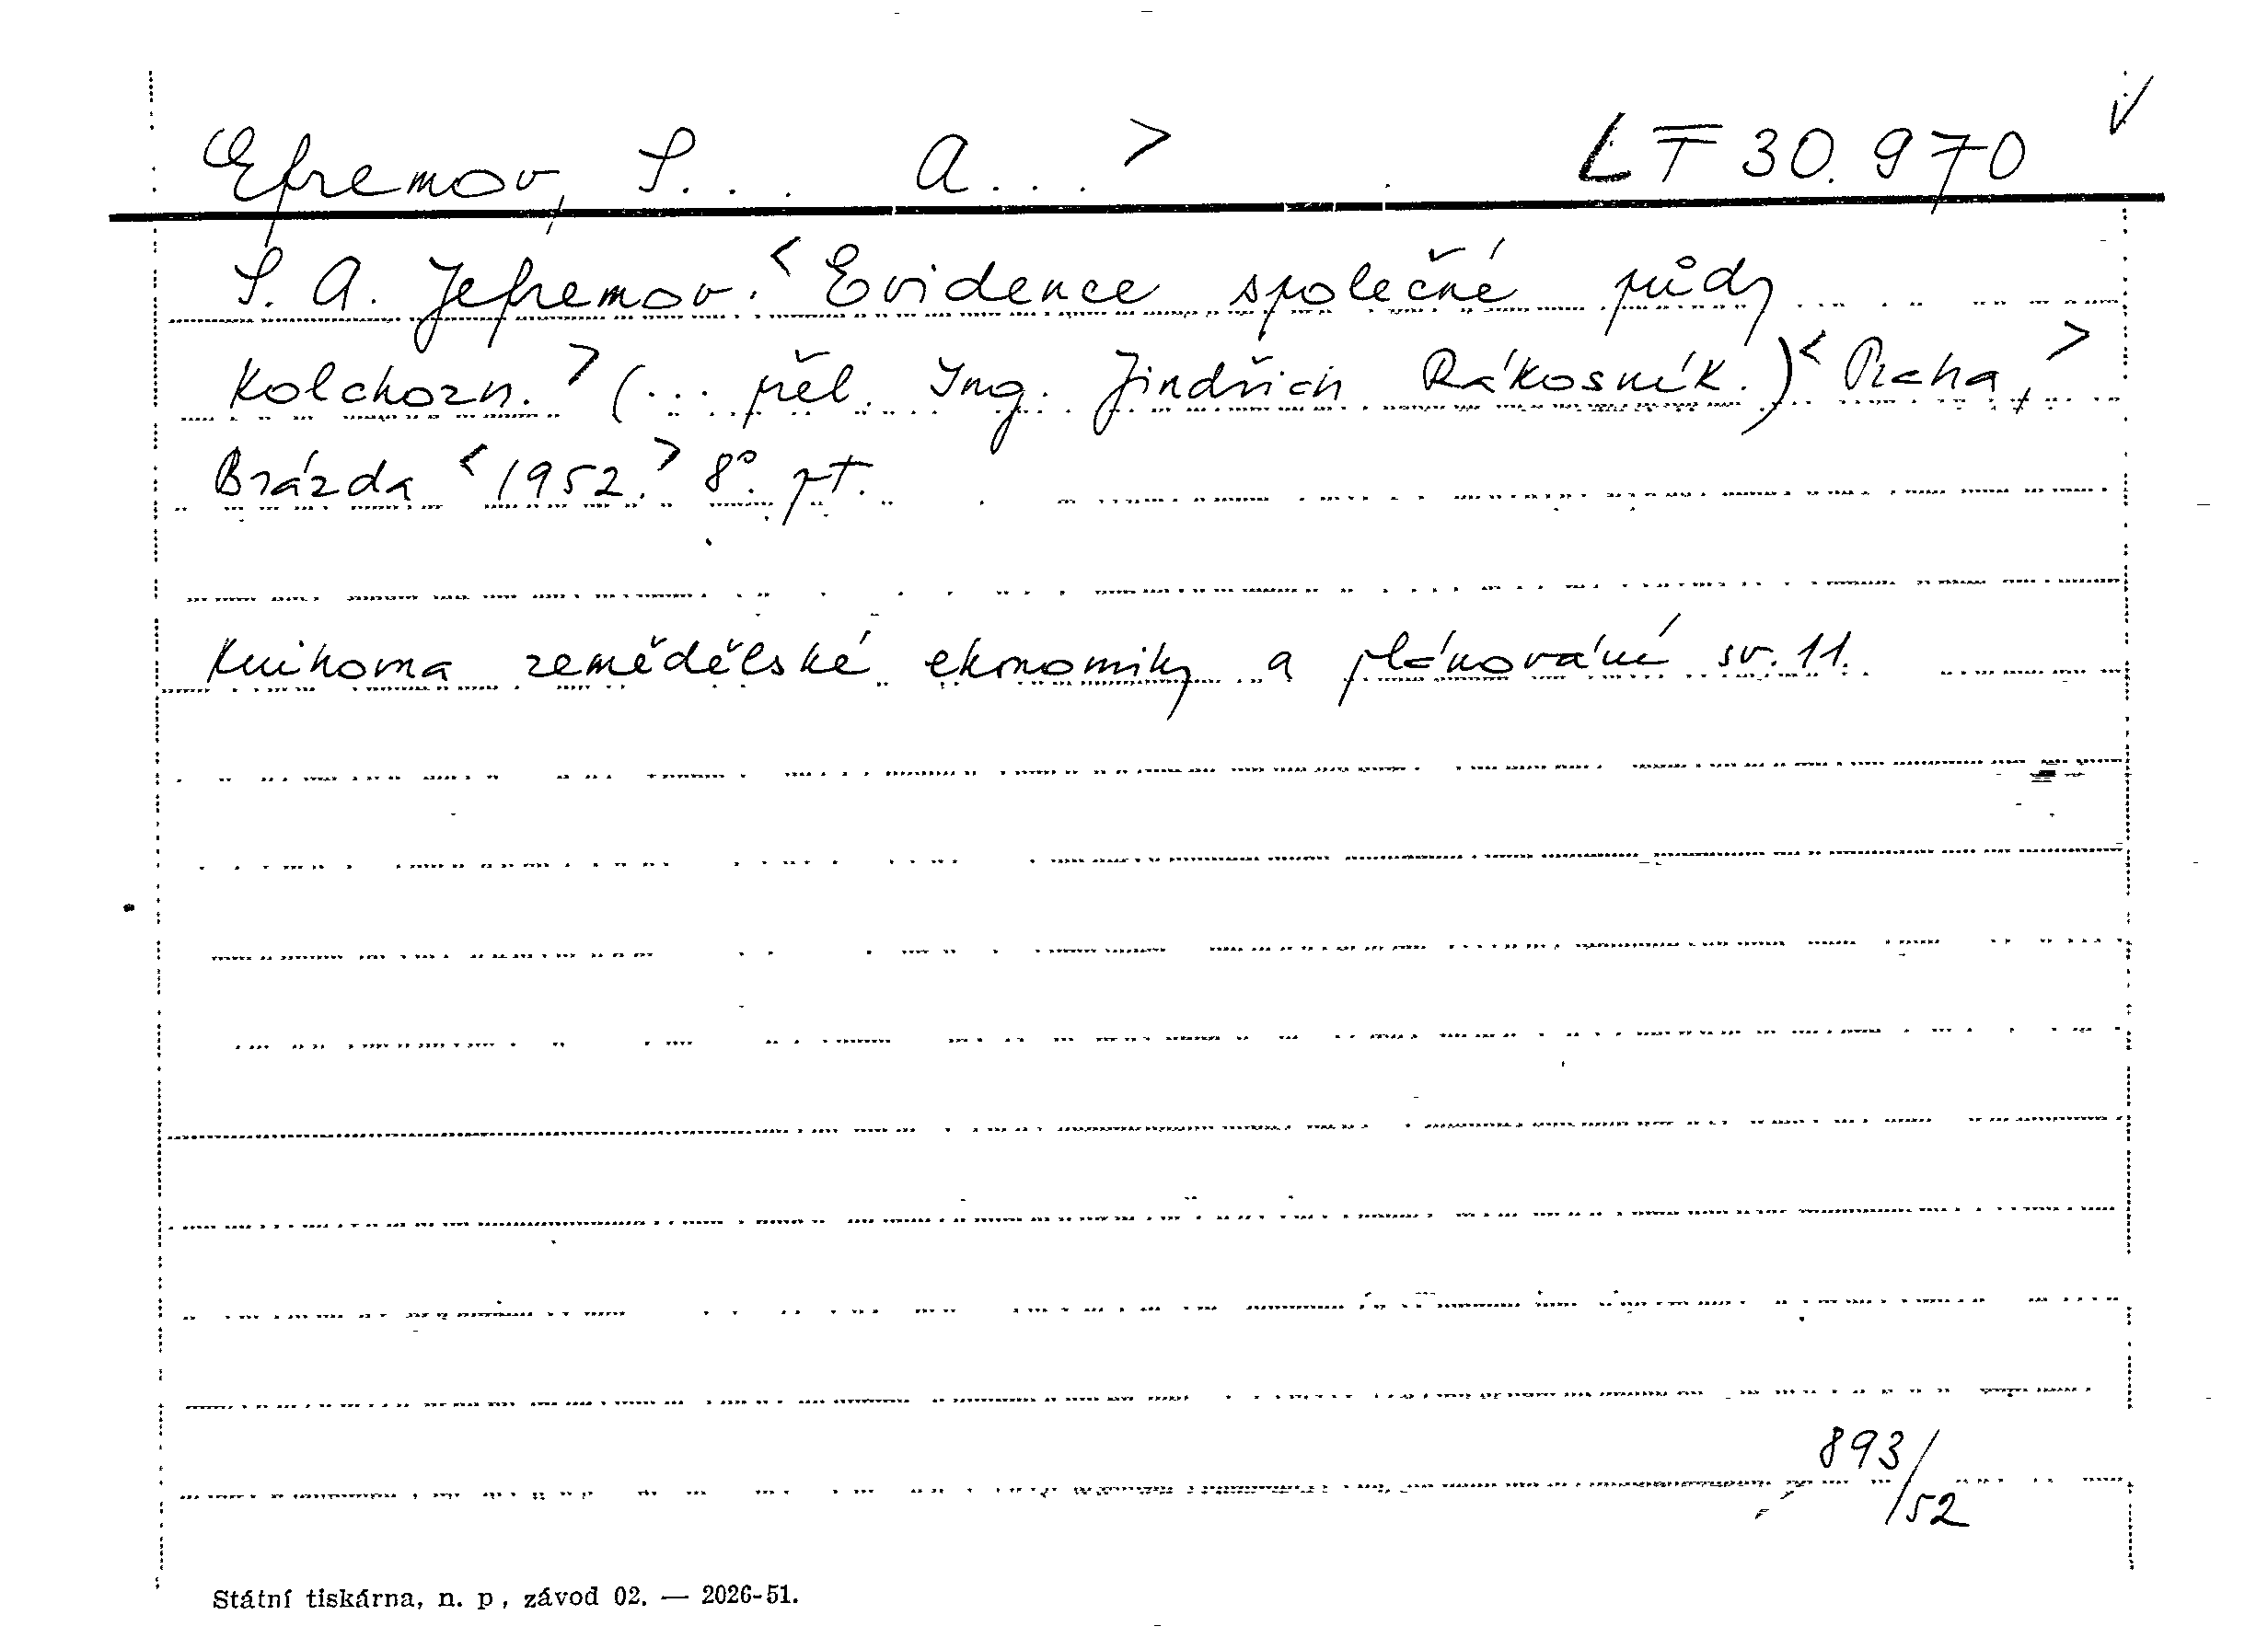 Efremov, S... A...> LT 30.970 √
S. A. Jefremov. < Evidence společné půdy
kolchozn. > (... přel. Ing. Jindřich Rákosník.) < Praha, >
Brázda < 1952. > 8°. pt.
Knihovna zemědělské ekonomiky a plánování sv. 11.
893/52
Státní tiskárna, n. p., závod 02. — 2026-51.